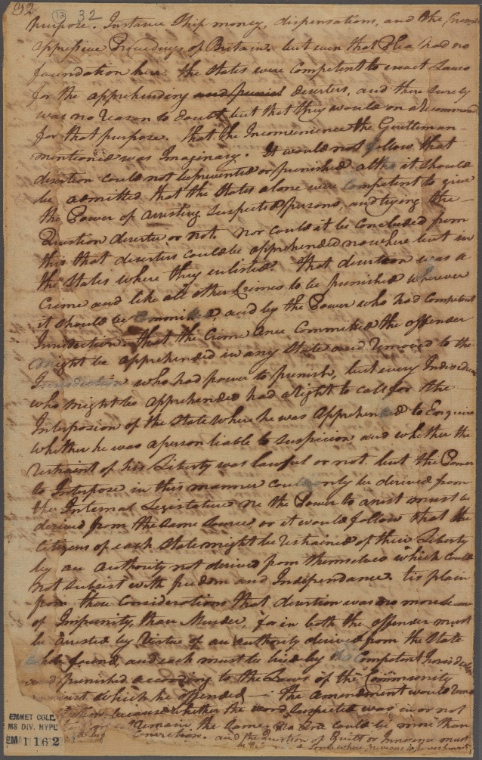 32 (13) 32
purpose. Instance Ship money, dispensations, and other
oppressive Proceedings of Britain. but even that Plea had no
foundation here. the States were Competent to enact Laws
for the apprehending and deserters, and there surely
was no reason to doubt but that they would on a
for that purpose. that the Inconvenience the Gentleman
mentioned was Imaginary. It would not follow that
desertion could not be prevented or punished altho it should
be admitted that the States alone were competent to give
the Power of arresting suspected persons, and trying the
Question deserter or not. nor could it be Concluded from
this that deserters could be apprehended nowhere but in
the States where they enlisted. that desertion was a
Crime and like all other Crimes to be punished wherever
it should be Committed, and by the Power who had Competent
Jurisdiction. that the Crime once Committed the offender
might be apprehended in any State and removed to the
Jurisdiction who had power to punish, but every Individual
who might be apprehended had a Right to call for the
Interposition of the State where he was Apprehended to Enquire
whether he was a person liable to suspicion and whether the
restraint of his Liberty was lawful or not. but the Power
to Interpose in this manner could only be derived from
the Internal Legislature so the Power to arrest must be
derived from the same Source or it would follow that the
Citizens of each State might be restrained of their Liberty
by an Authority not derived from themselves which could
not subsist with freedom and Independance. tis plain
from these Considerations that desertion was no more
of Impunity than Murder. for in both the offender must
be arrested by Virtue of an authority derived from the State
be found, and each must be tried by the Competent
and punished according to the Laws of the Community
against which he offended. the amendment would
because whether the word suspected was in or not
remain the same. no one could be more than
Conviction. and the question of Guilt or Innocence must
EMMET COLL.
MS DIV. NYPL
1162